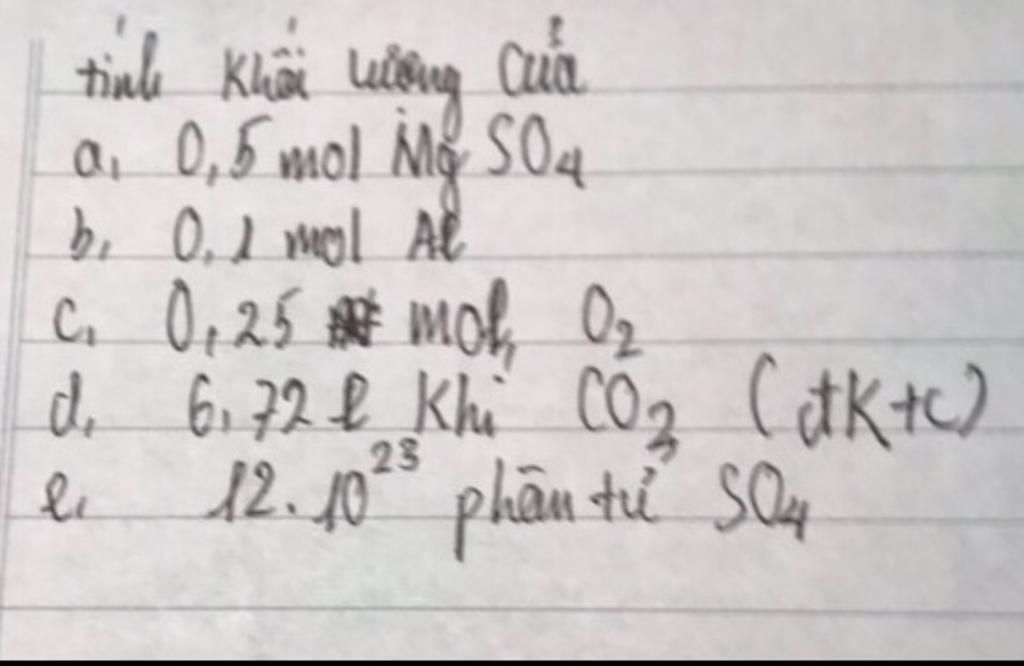 tính khối lượng của
a, 0,5 mol Mg SO4
b, 0,1 mol Al
c, 0,25 mol O2
d, 6,72 l khí CO2 (đktc)
e, 12.10^23 phân tử SO4